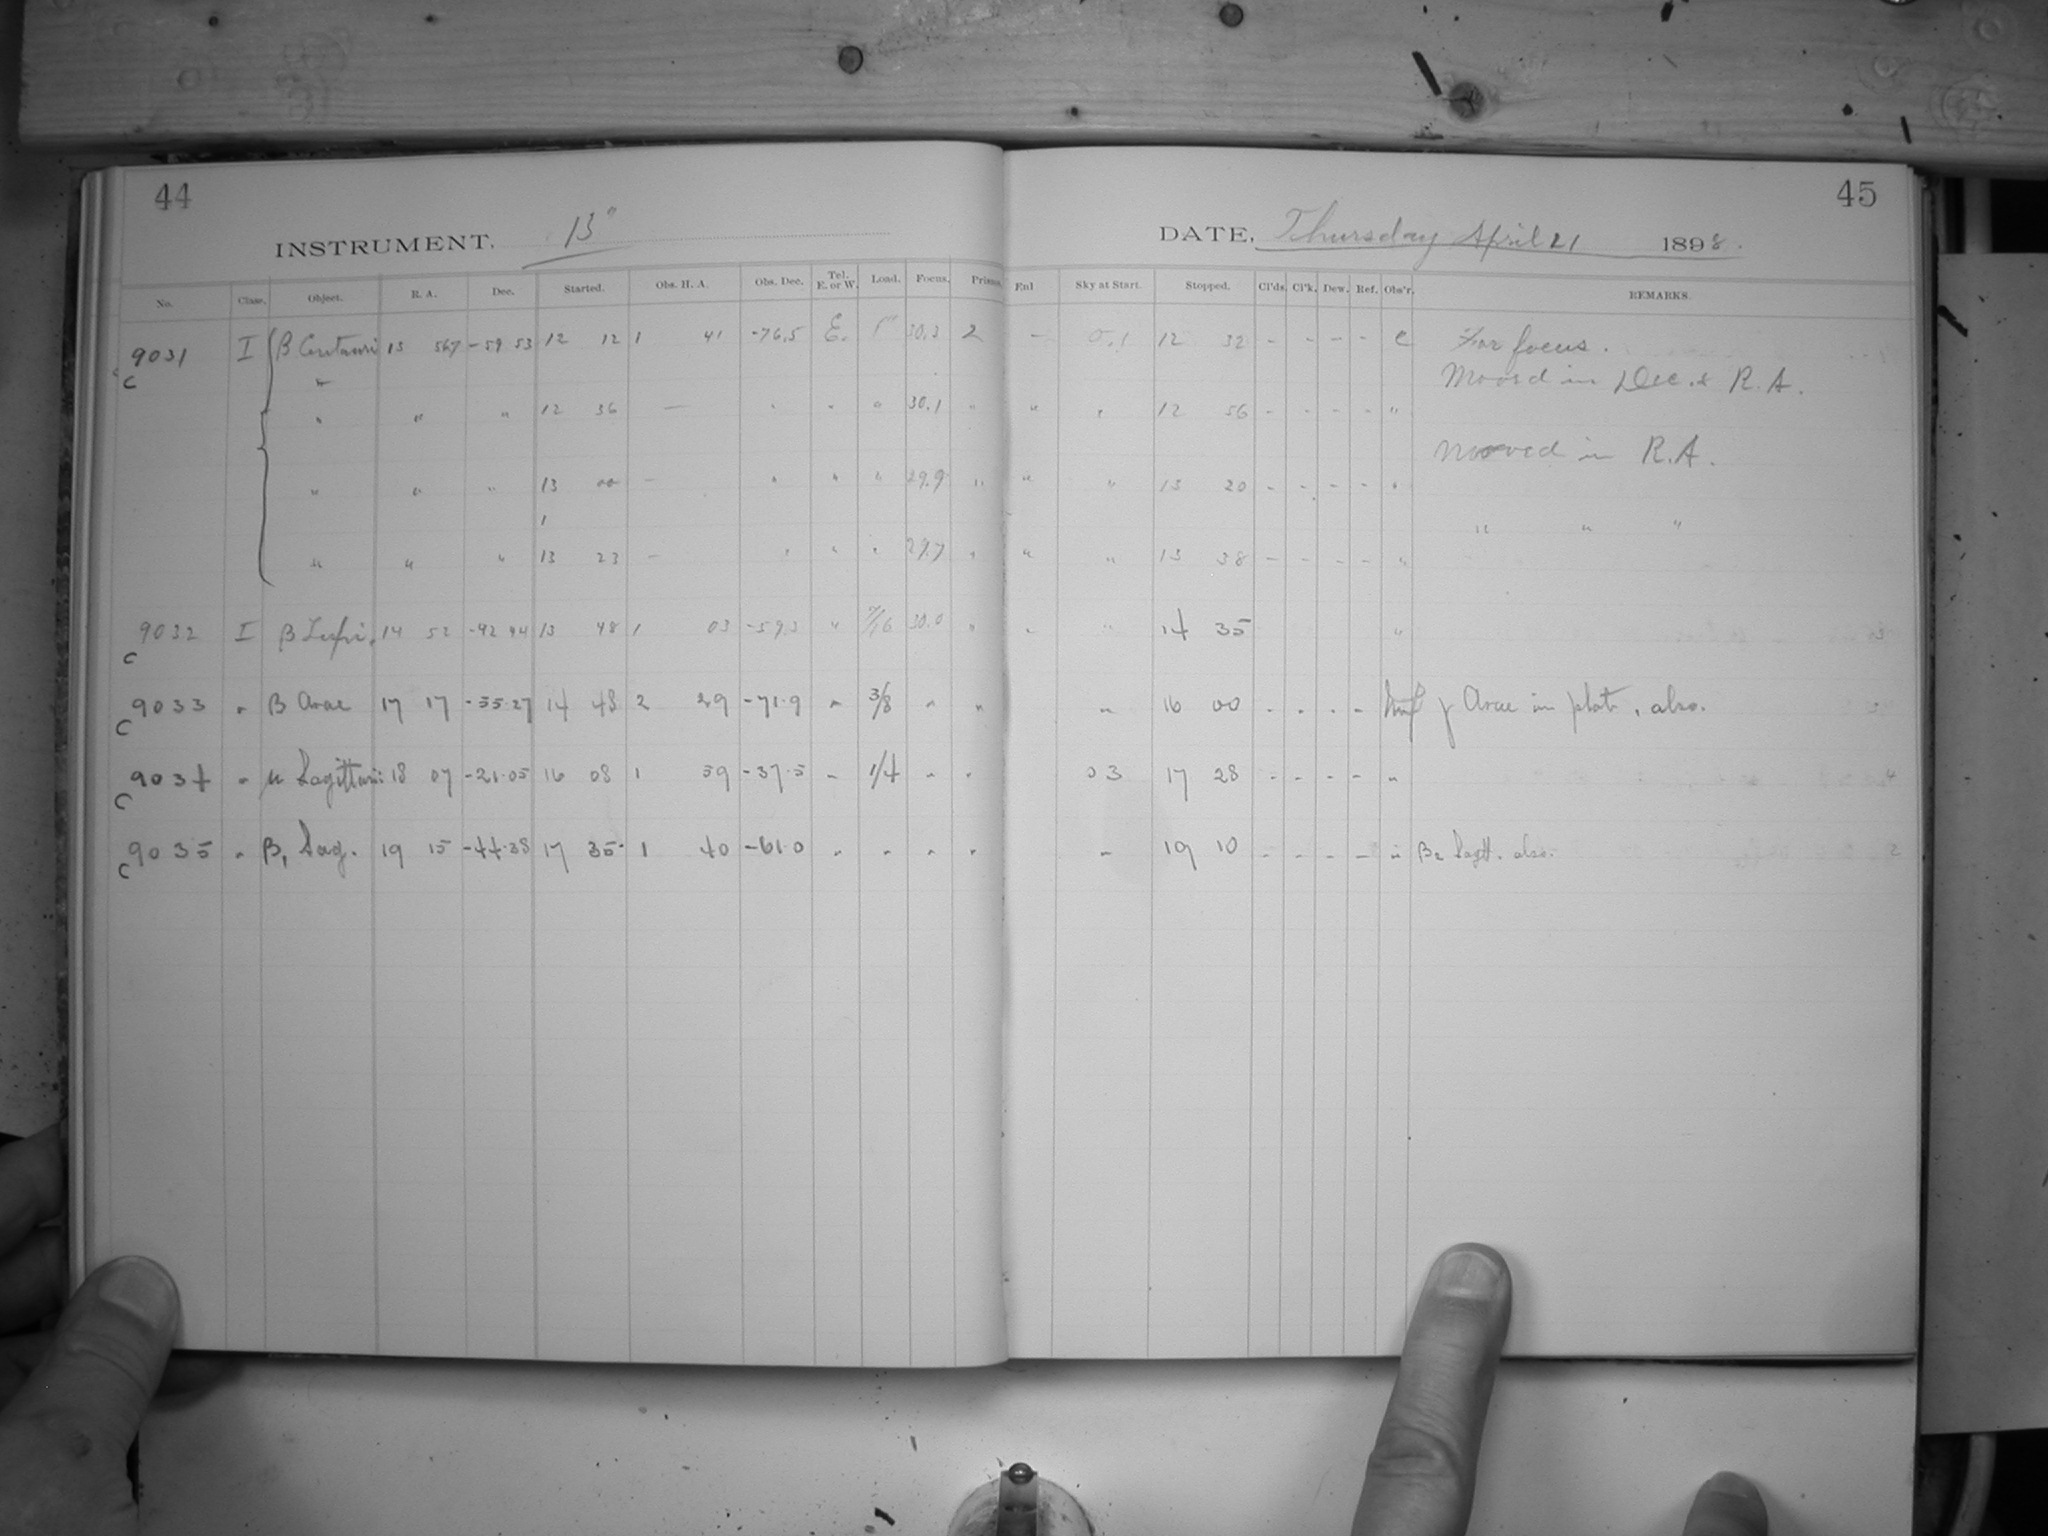 44
45
INSTRUMENT. 13"
DATE, Thursday April 21 1898.
No. Class. Object. R. A. Dec. Started. Obs. H. A. Obs. Dec. Tel. E. or W. Load. Focus. Prisms. Enl Sky at Start. Stopped. Cl'ds. Cl'k. Dew. Ref. Obs'r. REMARKS.
9031 I β Centauri 13 567 -59 53 12 12 1 41 -76.5 E. 1" 30.3 2 – 0.1 12 32 - - - - C For focus.
C " Moved in Dec. & R.A.
" " " 12 36 — " " " 30.1 " " " 12 56 - - - - "
Moved in R.A.
" " " 13 00 — " " " 29.9 " " " 13 20 - - - - "
1 " " "
" " " 13 23 — " " " 29.7 " " " 13 38 - - - - "
9032 I β Lupi. 14 52 -42 44 13 48 1 03 -59.3 " 7/16 30.0 " " " 14 35 "
C
9033 " β Arae 17 17 -55.27 14 48 2 29 -71.9 " 3/8 " " " 16 00 - - - - γ Arae in plate, also.
C
9034 " μ Sagittarii 18 07 -21.05 16 08 1 39 -37.5 " 1/4 " " 03 17 28 - - - - "
C
9035 " β, Sag. 19 15 -44.38 17 35 1 40 -61.0 " " " " " 19 10 - - - - " β2 Sagitt. also.
C